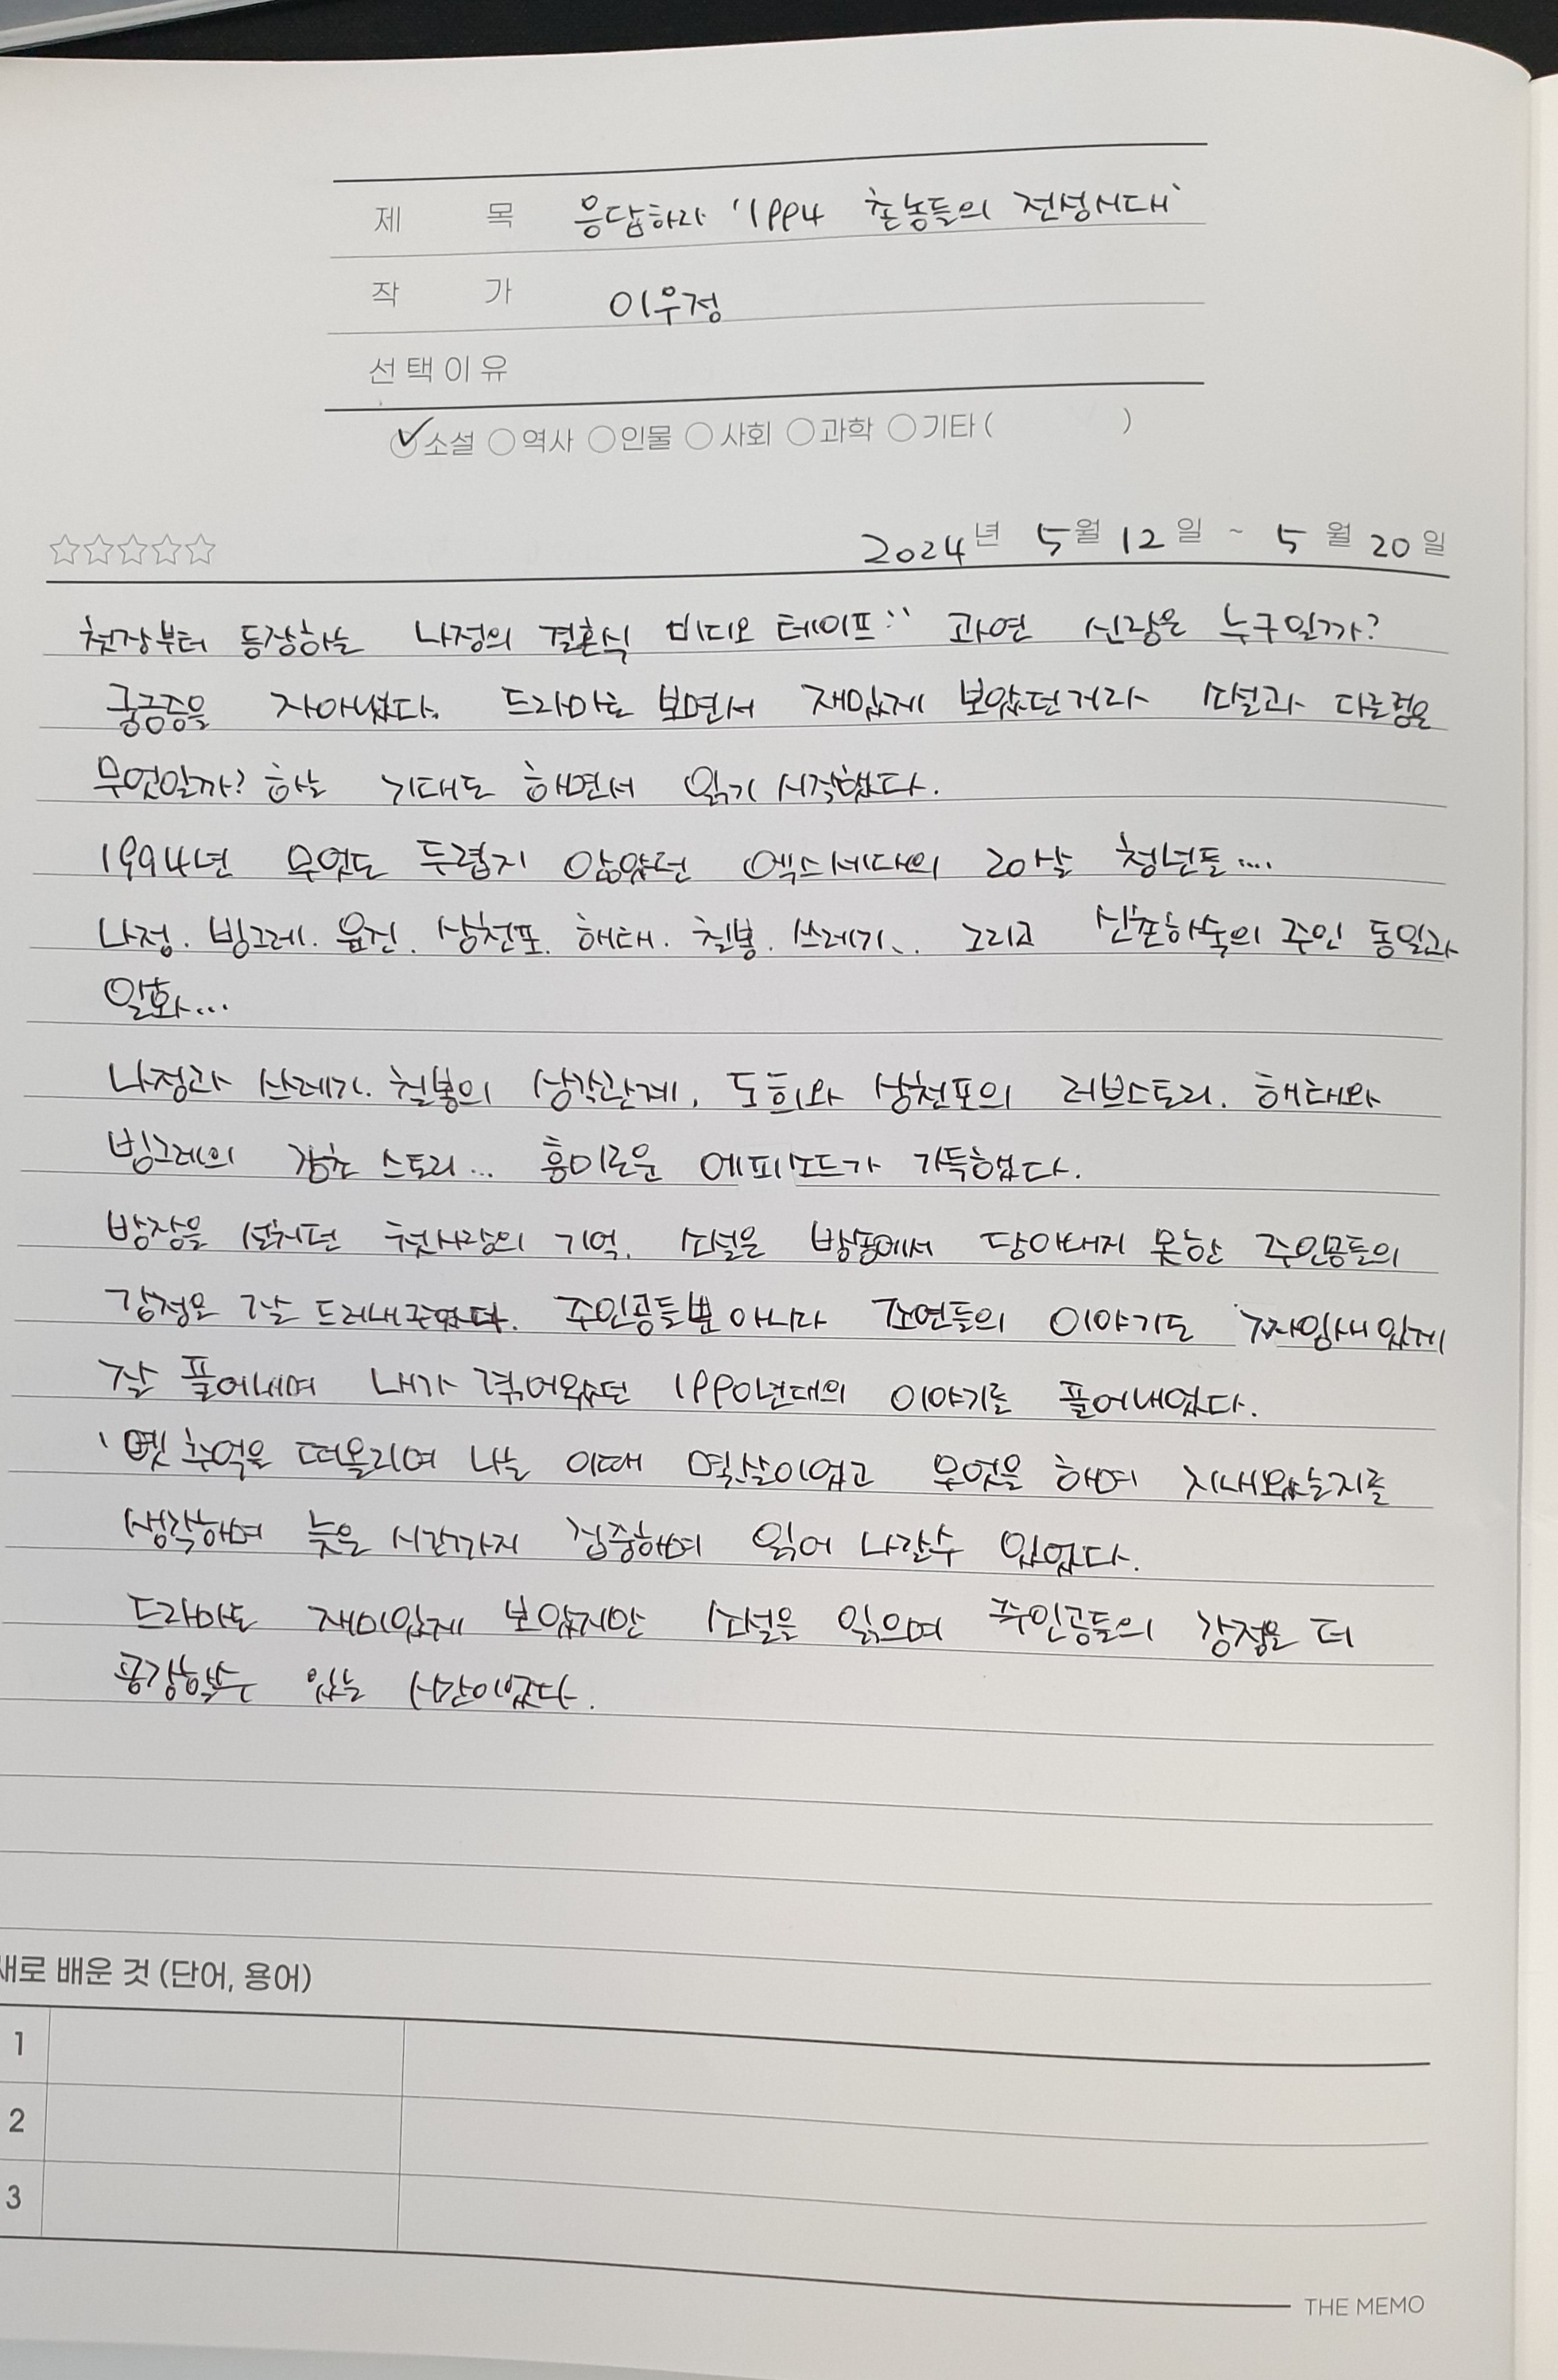 제 목 응답하라 '1994 촌놈들의 전성시대'
작 가 이우정
선택이유
소설 역사 인물 사회 과학 기타 ( )
2024년 5월 12일 ~ 5월 20일
첫장부터 등장하는 나정의 결혼식 비디오 테이프.. 과연 신랑은 누구일까?
궁금증을 자아냈다. 드라마로 보면서 재밌게 보았던거라 소설과 다른점은
무엇일까? 하는 기대도 하면서 읽기 시작했다.
1994년 무엇도 두렵지 않았던 엑스세대의 20살 청년들....
나정. 빙그레. 윤진. 삼천포. 해태. 칠봉. 쓰레기.. 그리고 신촌하숙의 주인 동일과
일화...
나정과 쓰레기. 칠봉의 삼각관계, 도희와 삼천포의 러브스토리. 해태와
빙그레의 청춘 스토리... 흥미로운 에피소드가 가득했다.
밤잠을 설치던 첫사랑의 기억. 소설은 방송에서 담아내지 못한 주인공들의
감정을 잘 드러내주었다. 주인공들뿐 아니라 조연들의 이야기도 짜임새있게
잘 풀어내며 내가 겪어왔던 1990년대의 이야기를 풀어내었다.
옛 추억을 떠올리며 나는 이때 몇살이었고 무엇을 하며 지내왔는지를
생각하며 늦은 시간까지 집중하며 읽어 나갈수 있었다.
드라마도 재미있게 보았지만 소설을 읽으며 주인공들의 감정을 더
공감할수 있는 시간이었다.
새로 배운 것 (단어, 용어)
1
2
3
THE MEMO